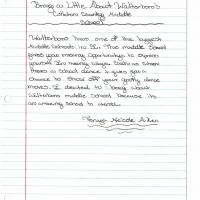 Brag a Little About Walterboro's
Colleton Country Middle
School
Walterboro has one of the biggest
Middle Schools in SC. This middle School
gives you many opportunity to express
yourself in many ways. Such as when
there is School dance it gives you a
chance to show off your goofy dance
moves. I decided to brag about
Walterboro middle School because its
an amazing school to attend.